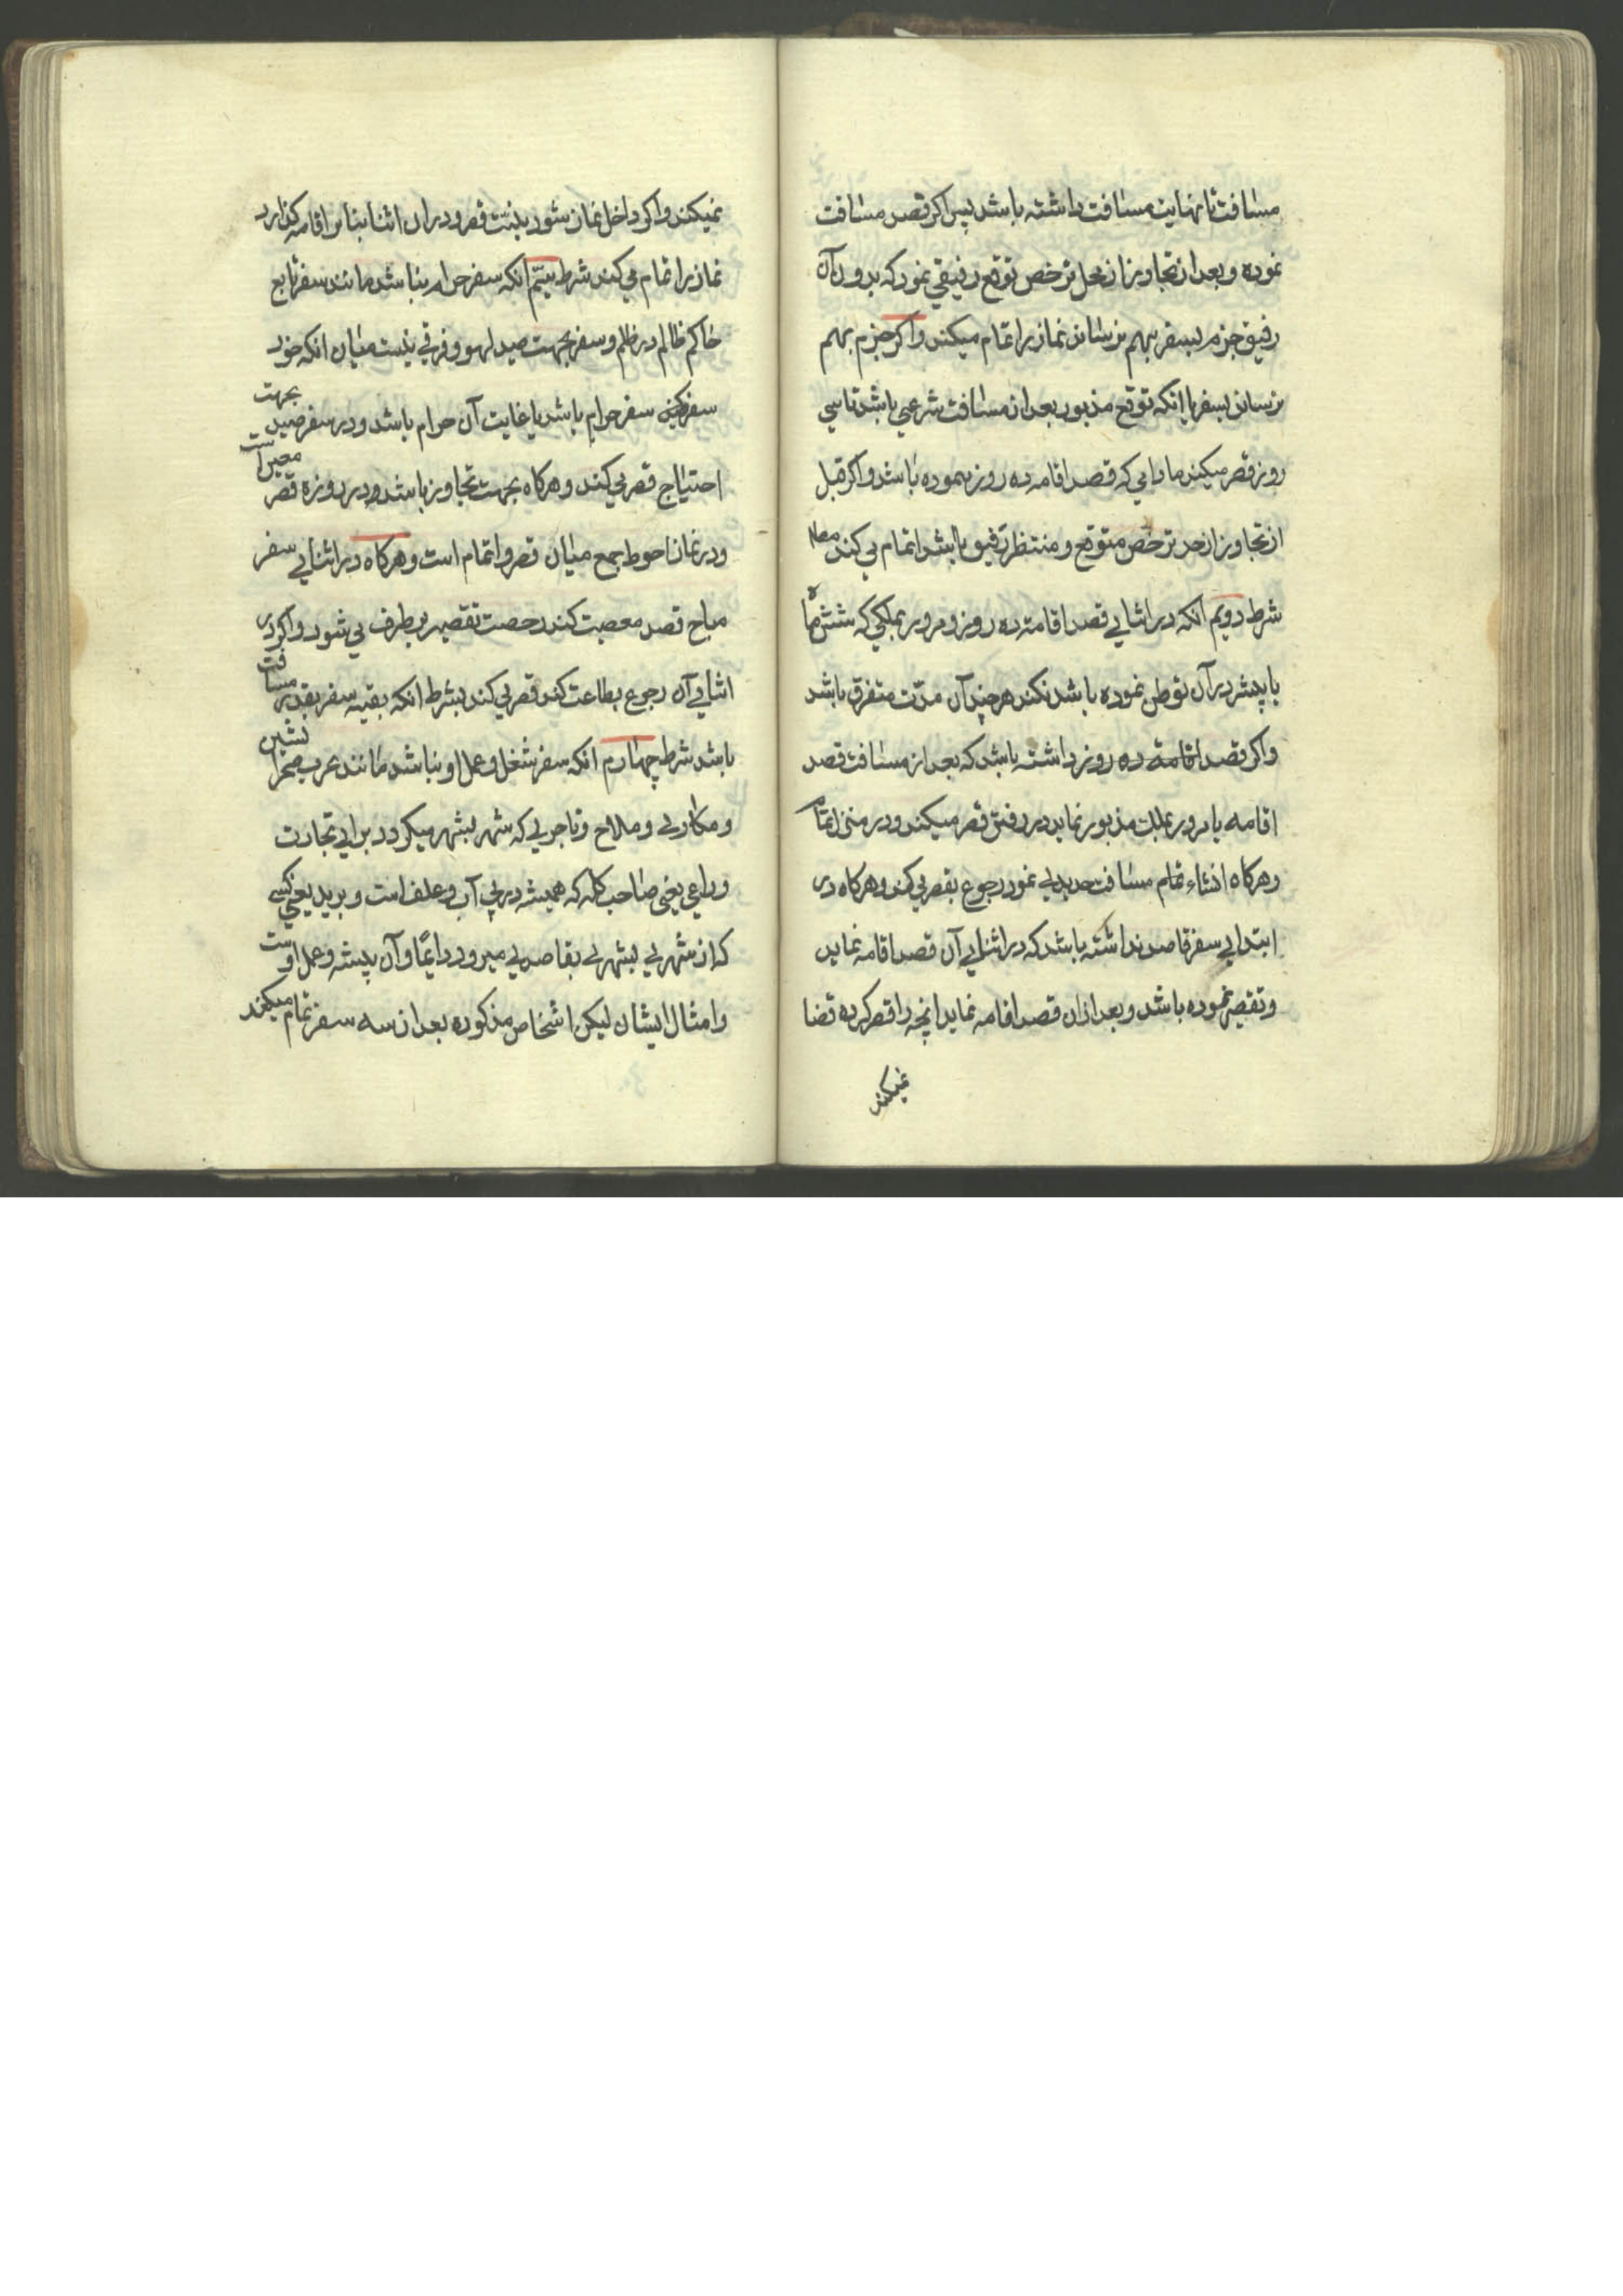 مسافت تا نهایت مسافت داشته باشد پس اکر قصد مسافت
نموده و بعد از تجاوز از محل ترخص توقع رفیقی نمود که بدون آن
رفیق جزم بسفر بهم نرساند نماز را تمام میکند واکر جزم بهم
رساند بسفر با انکه توقع مذبور بعد از مسافت شرعی باشد تا سی
روز قصر میکند مادامی که قصد اقامه ده روز نموده باشد واکر قبل
از تجاوز از حد ترخص متوقع و منتظر رفیق باشد اتمام می کند
شرط دویم انکه در اثنایی قصد اقامته ده روز و مرور بملکی که شش ماه
یا پیشر در آن توطن نموده باشد نکند هر چند آن مدّت متفرق باشد
واکر قصد اقامة ده روز داشته باشد که بعد از مسافت قصد
اقامه یا مرور بملک مذبور نماید در رفتن قصر میکند و در منزل اتمام
وهرکاه انشاء تمام مسافت جدیدی نمود رجوع بقصر می کند وهرکاه در
ابتدایی سفر قاصد نداشته باشد که در اثنایی آن قصد اقامه نماید
وتقصیر نموده باشد و بعد ازان قصد اقامه نماید انچه را قصر کرده قضا
نمیکند
نمیکند واکر داخل نماز شود بنیّت قصر و در ان اثنا بنا بر اقامه کذارد
نماز را تمام می کند شرط سیّم انکه سفر حرام نباشد مانند سفر تابع
حاکم ظالم در ظلم و سفر بجهت صید لهو و فرقی نیست میان انکه خود
سفر کردن سفر حرام باشد یا غایت آن حرام باشد و در سفر صید بجهت
احتیاج قصر می کند و هرکاه بجهت تجاوز باشد و در روزه قصر معین است
ودر نماز احوط جمع میان قصر و اتمام است وهرکاه در اثنایی سفر
مباح قصد معصیت کند رخصت تقصیر بر طرف می شود واکر در
اثنایی آن رجوع بطاعت کند قصر می کند بشرط انکه بقیه سفر بقدر مسافت
باشد شرط چهارم انکه سفر شغل و عمل او نباشد مانند عرب صحرا نشین
و مکاری و ملاح و تاجری که شهر بشهر میکردد برایی تجارت
وراعی یعنی صاحب کله که همیشه در پی آب و علف است و برید یعنی کسی
که از شهری بشهری بقاصدی میرود دایمًا و آن پیشه و عمل اوست
وامثال ایشان لیکن اشخاص مذکوره بعد از سه سفر تمام میکند